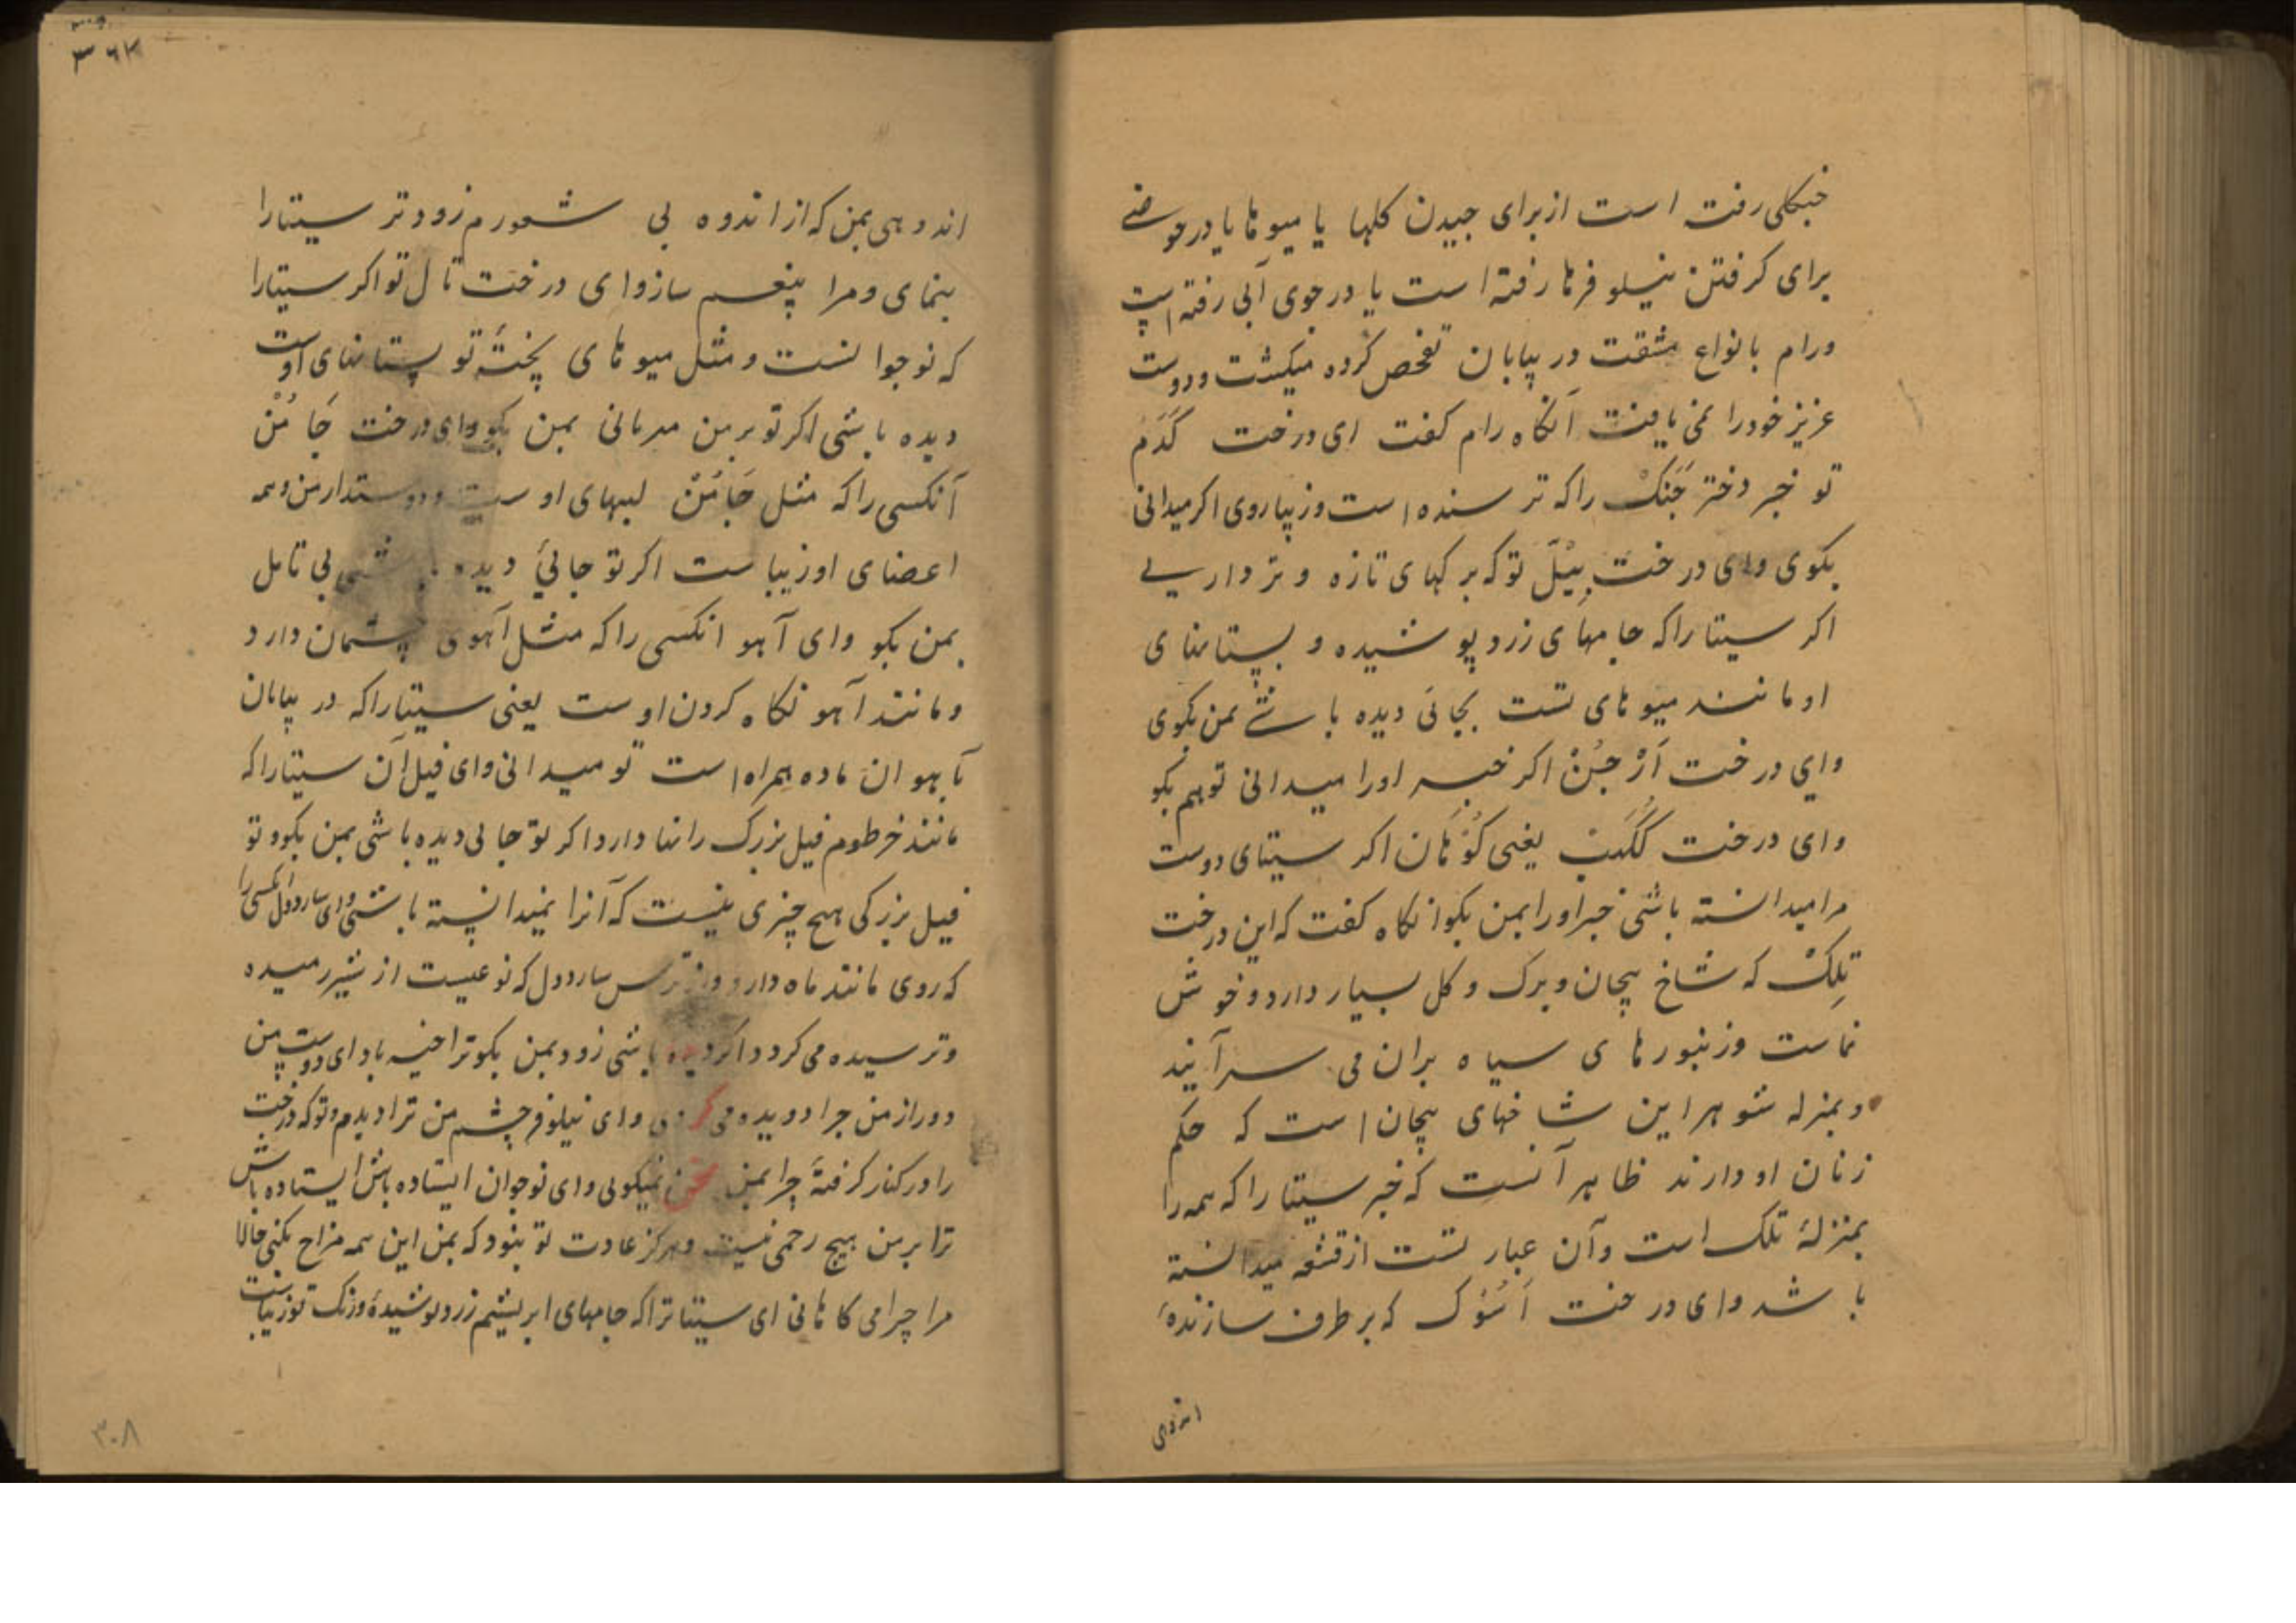 جنکلی رفته است از برای چیدن کلها یا میوها یا در حوضے
برای کرفتن نیلوفرها رفته است یا در جوی آبی رفته است
ورام بانواع مشقت در بیابان تفحص کرده میکشت ودوست
عزیز خودرا نمی یافت آنکاه رام کفت ای درخت کَدَم
تو خبر دختر جَنَکْ راکه ترسنده است وزیباروی اکر میدانی
بکوی وای درخت بیْلَ تو که برکهای تازه وتر داریے
اکر سیتا راکه جامهای زرد پوشیده و پستانهای
او مانند میوهای تست بجائی دیده باشے بمن بکوی
وای درخت اَرْجُنْ اکر خبر اورا میدانی توهم بکو
وای درخت کَکُبْ یعنی کَوْهان اکر سیتای دوست
مرا میدانسته باشی خبر اورا بمن بکو انکاه کفت که این درخت
تِلِکْ که شاخ پیچان وبرک وکل بسیار دارد وخوش
نماست وزنبورهای سیاه بران می سرآیند
وبمنزله شوهر این شاخهای پیچان است که حکم
زنان او دارند ظاهر آنست که خبر سیتا راکه همه را
بمنزلهٔ تلک است وآن عبارتست از قشقه میدانسته
باشد وای درخت اَسُوک که برطرف سازندهٔ
اندوهی
۳۶۲
اندوهی بمن که از اندوه بی شعورم زودتر سیتارا
بنمای ومرا بیغم ساز وای درخت تال تو اکر سیتارا
که نوجوانست ومثل میوهای پختهٔ تو پستانهای اوست
دیده باشی اکر تو برمن مهربانی بمن بکو وای درخت جَامُنْ
آنکسی راکه مثل جَامُنْ لبهای اوست ودوستدار من وهمه
اعضای او زیباست اکر تو جائی دیده باشی بی تامل
بمن بکو وای آهو انکسی راکه مثل آهوی چشمان دارد
ومانند آهو نکاه کردن اوست یعنی سیتاراکه در بیابان
بآهوان ماده همراه است تو میدانی وای فیل آن سیتاراکه
مانند خرطوم فیل بزرک رانها دارد اکر تو جائی دیده باشی بمن بکو وتو
فیل بزرکی هیچ چیزی نیست که آنرا نمیدانسته باشی وای ساردول آنکسی را
که روی مانند ماه دارد واز ترس ساردول که نوعیست از شیر رمیده
وترسیده می کردد اکر دیده باشی زود بمن بکو ترا خیر باد ای دوست من
دور از من چرا دویده می وای نیلوفر چشم من ترا دیدم وتو که درخت
را در کنار کرفتهٔ چرا بمن سخن نمیکوئی وای نوجوان ایستاده باش ایستاده باش
ترا برمن هیچ رحمی نیست وهرکز عادت تو نبود که بمن این همه مزاح بکنی حالا
مرا چرا می کاهانی ای سیتا تراکه جامهای ابریشم زرد پوشیدهٔ ورنک تو زیباست
۳۰۸